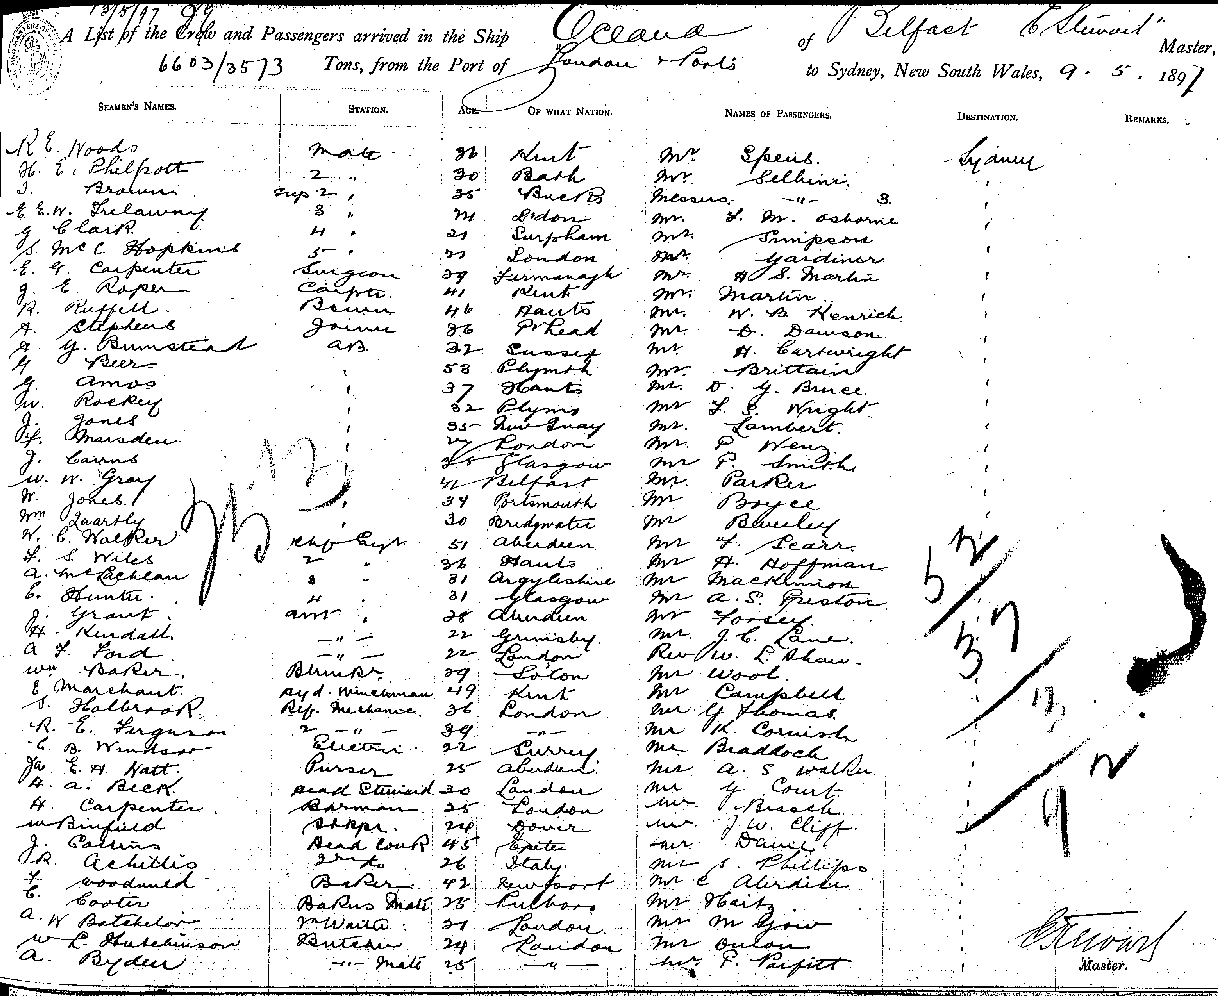 13/5/97 99
A List of the Crew and Passengers arrived in the Ship Oceana of Belfast E Stewart Master,
6603/3573 Tons, from the Port of London & Ports to Sydney, New South Wales, 9 . 5 . 1897
SEAMEN'S NAMES. STATION. AGE. OF WHAT NATION. NAMES OF PASSENGERS. DESTINATION. REMARKS.
R E. Woods Mate 36 Kent Mr Spens. Sydney
H. E. Philpott 2 " 30 Bath Mr Selbini.
Brown 2 " 35 Bucks Messrs. -"- 3.
E. E. W. Trelawny 3 " Mr. F. M. Osborne
G Clark 4 " 21 Mr. Simpson
S McC Hopkins 5 " London Mr. Gardiner
E. G. Carpenter Surgeon 29 Fermanagh Mr H S. Martin
J. E Roper Carptr. 41 Kent Mr. Martin.
R. Ruffell. 46 Hants Mr. W. B Kenrich
A. Stephens Joiner 36 P'head Mr. D. Dawson
G. Bumstead A.B. 32 Sussex Mr H. Cartwright
Beer 53 Plymth Mr. Brittain
G. Amos 37 Hants Mr. D. G. Bruce
W. Rockey 32 Plym Mr F. E. Wright.
J. Jones 35 New Quay Mr. Lambert.
Marsden London Mr P Wenz
J. Cairns Glasgow Mr P. Smith
W. W. Gray Belfast Mr. Parker
W. Jones 34 Portsmouth Mr Boyce
Wm Quartly 30 Bridgwater Mr Beverley
W. C. Walker Chf Engr 51 Aberdeen Mr F. Scarr
F. S Wiles 2 " 36 Hants Mr. H. Hoffman
A. McLachlan 3 " 31 Argyllshire Mr MacKinnon
E. Hunter. 4 " 31 Glasgow Mr A. S. Preston
J. Grant. 28 Aberdeen Mr Forsey.
H. Kendall -"- 22 Grimsby. Mr J. C. Lane.
A F. Ford -"- 22 London Rev W. L Shaw.
Wm Baker. 29 Mr Wool.
E Marchant. Hyd. Winchman 49 Kent Mr Campbell
S. Holbrook Ref. Mechanic. 36 London Mr G Thomas
R. E. Ferguson 2 -"- 39 -"- Mr K. Cornish
C B Windsor 22 Surrey Mr Braddock
E. H. Natt. Purser 25 Aberdeen Mr A. S Walker
H. A. Beck Head Steward 30 London Mr G Court
H. Carpenter Barman 25 London Mr Beach
W Binfield Strkpr. 24 Dover Mr J. W. Cliff
J. Head Cook 45 Exeter Mr
Achillis 26 Italy Mr S. Phillips
F Woodnuld Baker 42 Newport Mr C
C. Cooter Bakers Mate 25 Pulboro Mr Haitz
A. W Batchelor 21 London Mr M Gow
W L Hutchinson Butcher 24 London Mr
A. Byden -"- Mate 25 -"- Mr P. Parfitt
52
57
13
92
E Stewart
Master.